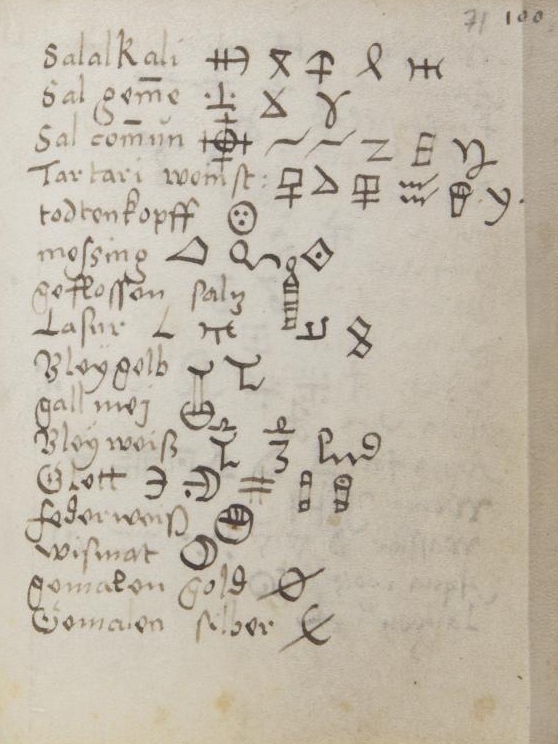 71 100
Sal alkali
Sal gem̄e
Sal com̄un
Tartari weinst:
todtenkopff
messing
geflossen saltz
Lasur
Bleygelb
gallmej
Bleyweiß
Glett
federweiß
wismat
gemalen gold
Gemalen silber